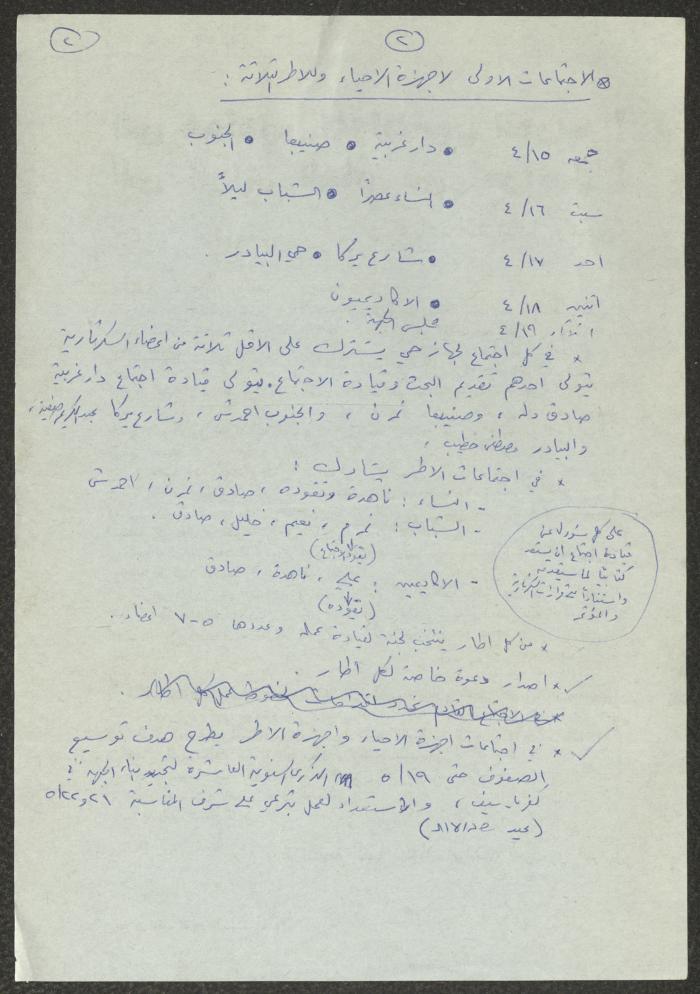 ٢
٢
* الاجتماعات الاولى لاجهزة الاحياء وللاطر الثلاثة :
جمعه ٤/١٥ • دار غربية • صنيبعا • الجنوب
سبت ٤/١٦ • النساء عصرًا • الشباب ليلاً
احد ٤/١٧ • شارع يركا • حي البيادر .
اثنين ٤/١٨ • الاكاديميون
٤/١٩ مجلس الجبهة .
* في كل اجتماع لجهاز حي يشترك على الاقل ثلاثة من اعضاء السكرتارية
يتولى احدهم تقديم البحث وقيادة الاجتماع. يتولى قيادة اجتماع دار غربية
صادق دله ، وصنيبعا نمر ، والجنوب احمد ، وشارع يركا عبد الكريم
والبيادر مصطفى خطيب .
* في اجتماعات الاطر يشارك :
- النساء : ناهدة وتقوده ، صادق ، نمر ، احمد
- الشباب : نمر م ، نعيم ، خليل ، صادق .
(يقود الاجتماع)
- الاكاديميين : علي ، ناهدة ، صادق
(يقوده)
على كل مسؤول عن
قيادة اجتماع ان يستعد
كتابيًا لما سيقدمه
واستنادًا لقرارات السكرتارية
والمؤتمر
* من كل اطار ينتخب لجنة لقيادة عمله وعددها ٥-٧ اعضاء .
* اصدار دعوة خاصة لكل اطار .
* في اجتماعات اجهزة الاحياء واجهزة الاطر يطرح هدف توسيع
الصفوف حتى ٥/١٩ الذكرى السنوية العاشرة لتجديد بناء الجبهة في
كفرياسيف ، والاستعداد لعمل تبرعي على شرف المناسبة ٢١ و٥/٢٢
(عيد